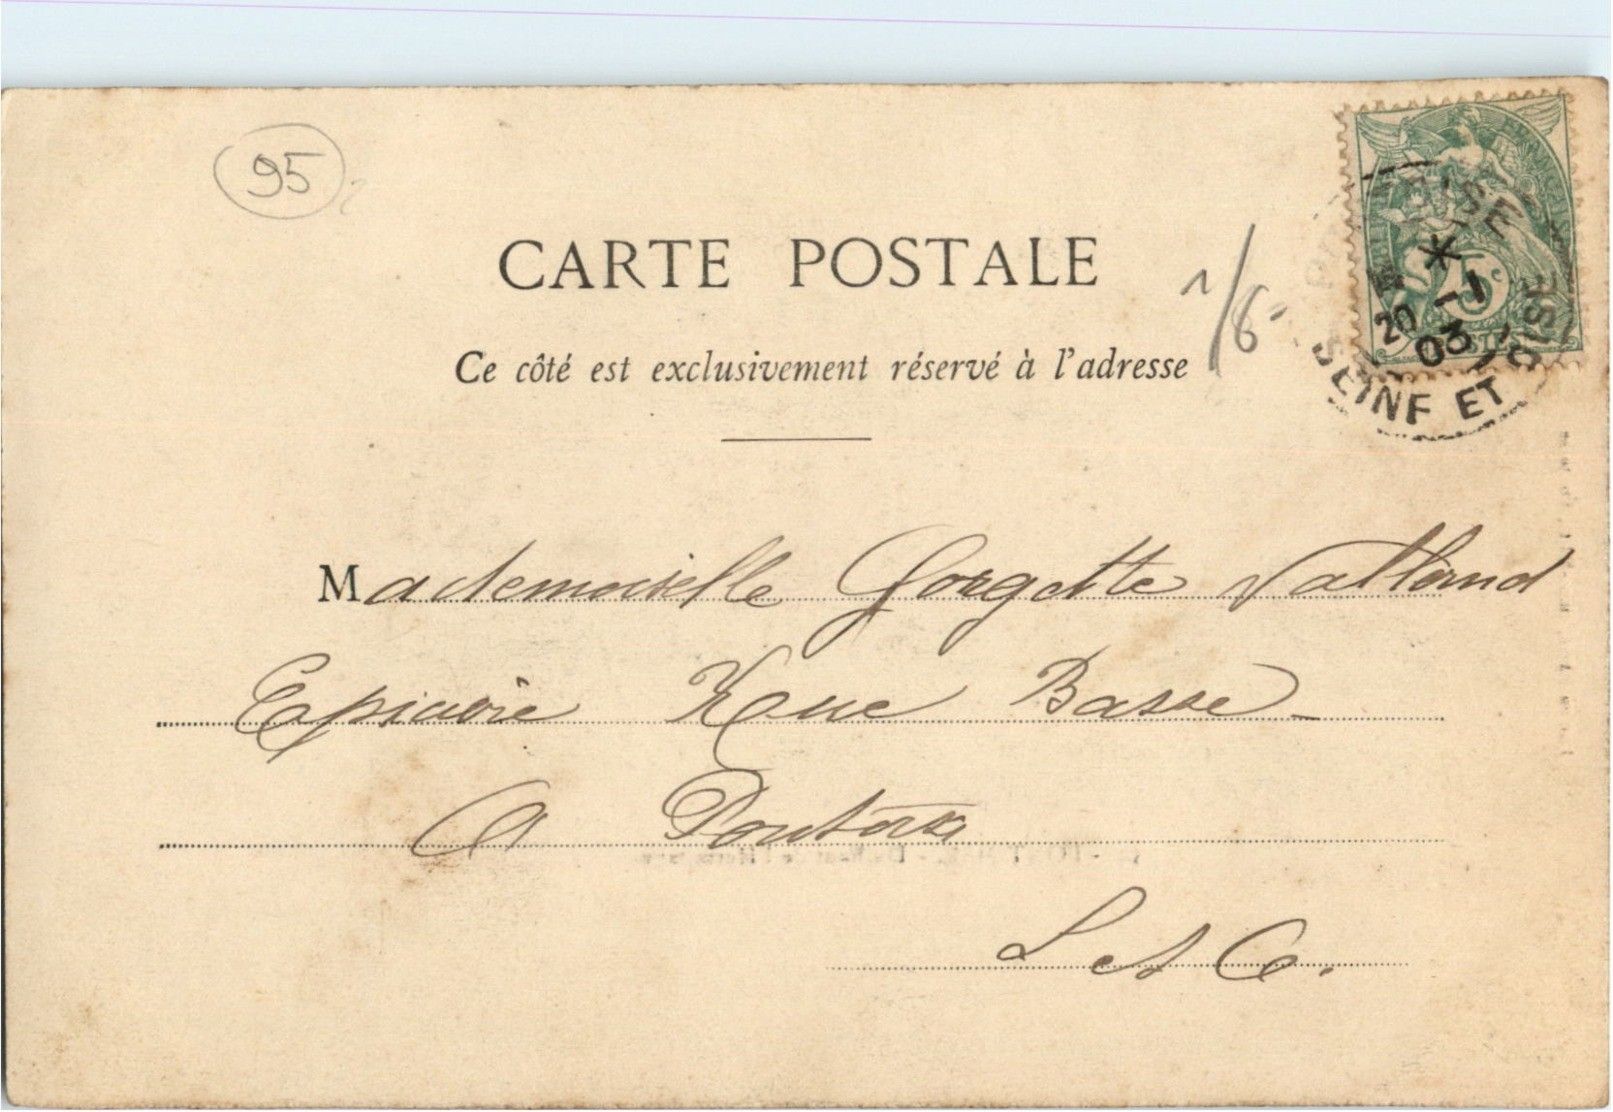 95
CARTE POSTALE
1/6-
Ce côté est exclusivement réservé à l'adresse
5c
20
03
SEINE ET OISE
Mademoiselle Gorgette Valland
Epicerie Rue Basse
A Pontoise
S et O.